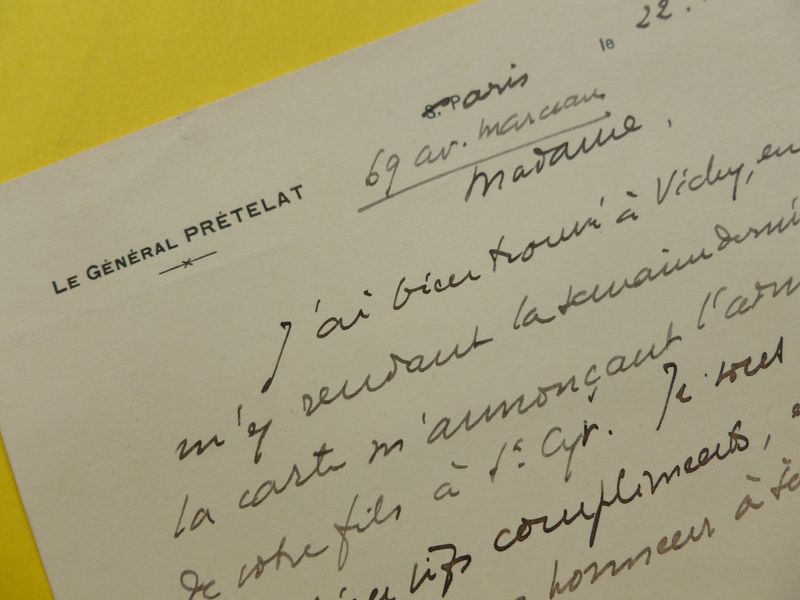 le 22.
Paris
69 av. Marceau
LE GÉNÉRAL PRÉTELAT
Madame,
J'ai bien trouvé à Vichy, en
m'y rendant la semaine derni
la carte m'annonçant l'adm
de votre fils à St Cyr. Je vous
vifs compliments,
honneur à